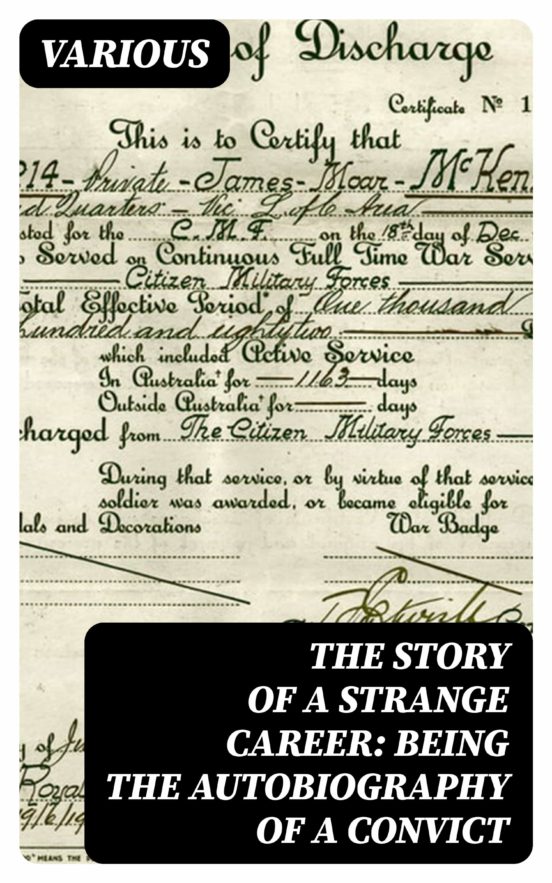 VARIOUS
of Discharge
Certificate Nº 1
This is to Certify that
14 - Private - James - Moar - McKen
d Quarters - Vic L. of C Area
sted for the C. M. F. on the 18th day of Dec
Served on Continuous Full Time War Serv
Citizen Military Forces
otal Effective Period* of One thousand
hundred and eightytwo
which included Active Service
In Australia† for 1163 days
Outside Australia† for days
harged from The Citizen Military Forces
During that service, or by virtue of that service
soldier was awarded, or became eligible for
als and Decorations War Badge
THE STORY
OF A STRANGE
CAREER: BEING
THE AUTOBIOGRAPHY
OF A CONVICT
y of Ju
Royal
19/6/19
" MEANS THE